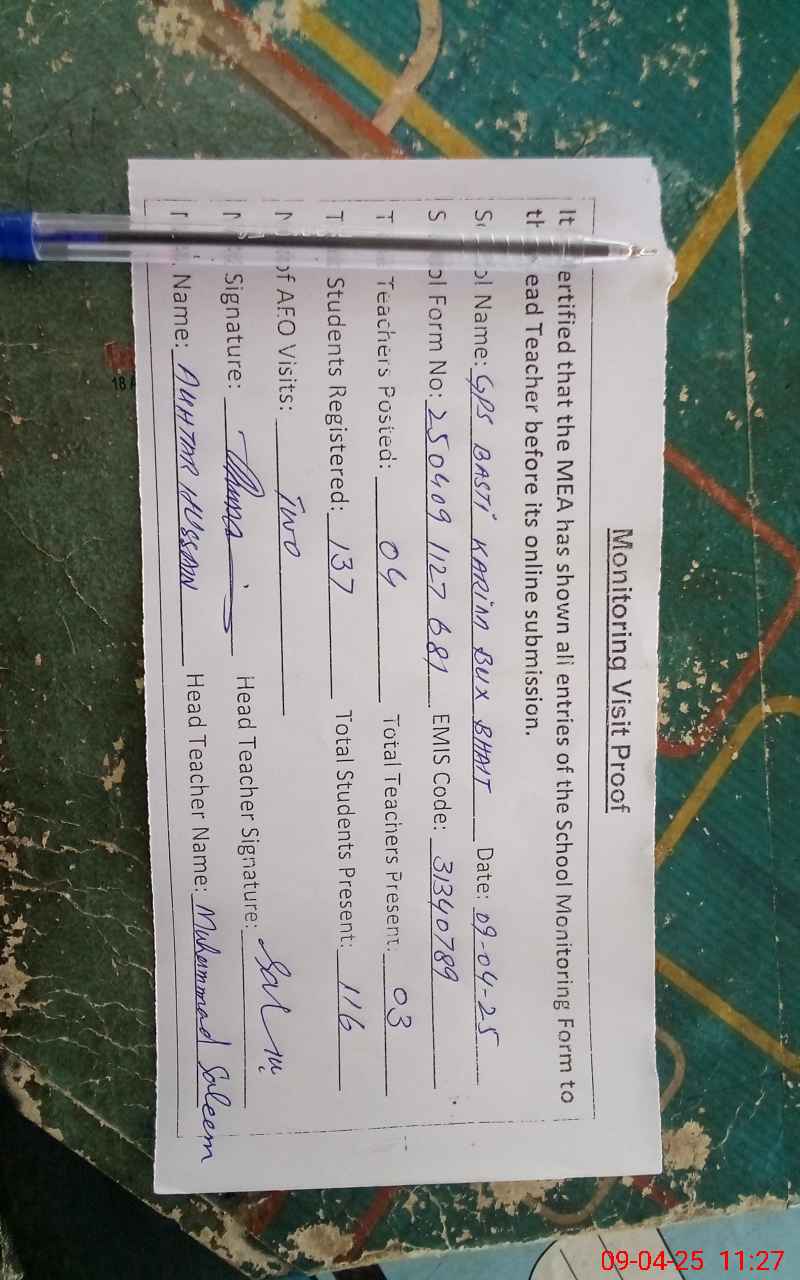 Monitoring Visit Proof
It ertified that the MEA has shown all entries of the School Monitoring Form to
th ead Teacher before its online submission.
Sc ol Name: GPS BASTI KARIM BUX BHATT Date: 09-04-25
S ol Form No: 250409 1127 681 EMIS Code: 31340789
T Teachers Posted: 04 Total Teachers Present: 03
T Students Registered: 137 Total Students Present: 116
N of AEO Visits: Two
Signature: Head Teacher Signature:
Name: AUHTAR HUSSAIN Head Teacher Name: Muhammad Saleem
18
09-04-25 11:27